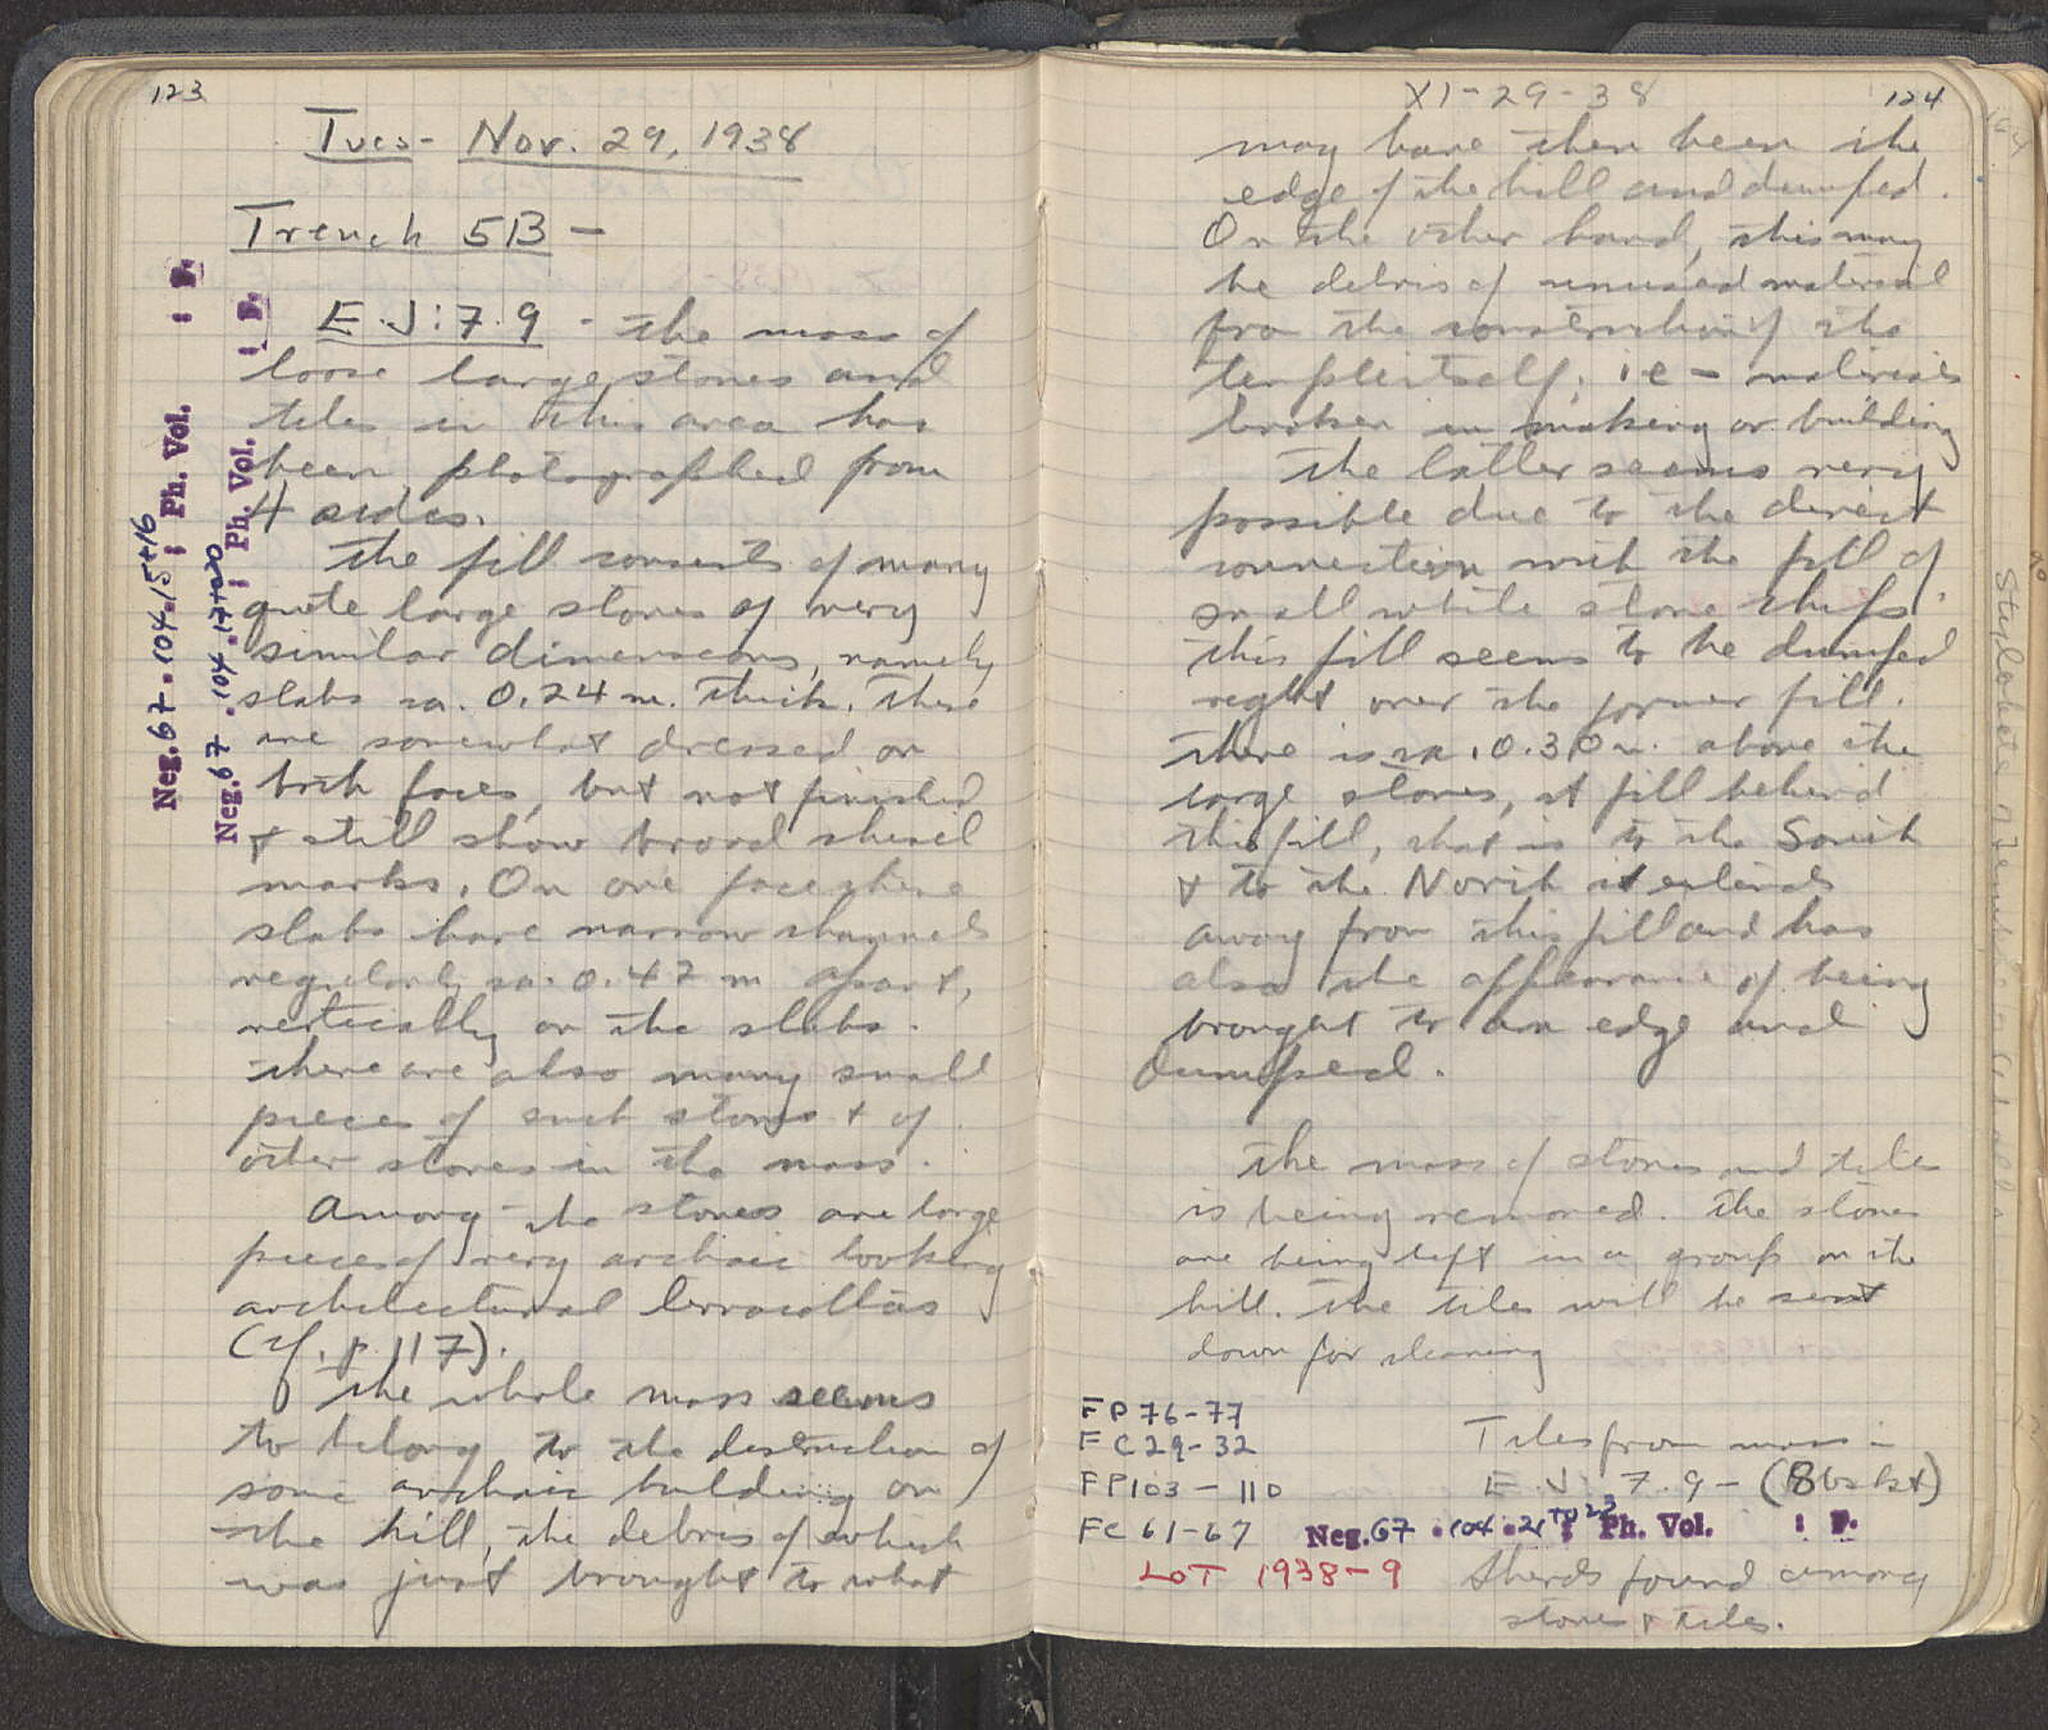 123
Tues- Nov. 29, 1938
Trench 5B -
E.J:7.9 - The mass of
loose large stones and
tiles in this area has
been photographed from
4 sides.
The fill consists of many
quite large stones of very
similar dimensions, namely
slabs ca. 0.24 m. thick. These
are somewhat dressed on
both faces, but not finished
+ still show broad chisel
marks. On one face these
slabs have narrow channels
regularly ca. 0.47 m apart,
vertically on the slabs.
There are also many small
pieces of such stones + of
other stones in the mass.
Among the stones are large
pieces of very archaic looking
architectural terracottas
(cf. p. 117).
The whole mass seems
to belong to the destruction of
some archaic building on
the hill, the debris of which
was just brought to what
Neg. 67 . 104 . 15+16 : Ph. Vol. : P.
Neg. 67 . 104 . 17+20 : Ph. Vol. : P.
XI-29-38
124
may have then been the
edge of the hill and dumped.
On the other hand, this may
be debris of unused material
from the construction of the
temple itself, ie - materials
broken in making or building
The latter seems very
possible due to the direct
connection with the fill of
small white stone chips.
This fill seems to be dumped
right over the former fill.
There is ca. 0.30 m. above the
large stones, st fill behind
this fill, that is to the South
+ to the North it extends
away from this fill and has
also the appearance of being
brought to an edge and
dumped.
The mass of stones and tiles
is being removed. The stones
are being left in a group on the
hill. The tiles will be sent
down for cleaning
FP 76-77
FC 29-32
FP 103-110
FC 61-67
LOT 1938-9
Tiles from mass in
E.J: 7.9 - (8 bskt)
Neg. 67 . 104 . 21 TO 23 : Ph. Vol. : P.
Sherds found among
stones + tiles.